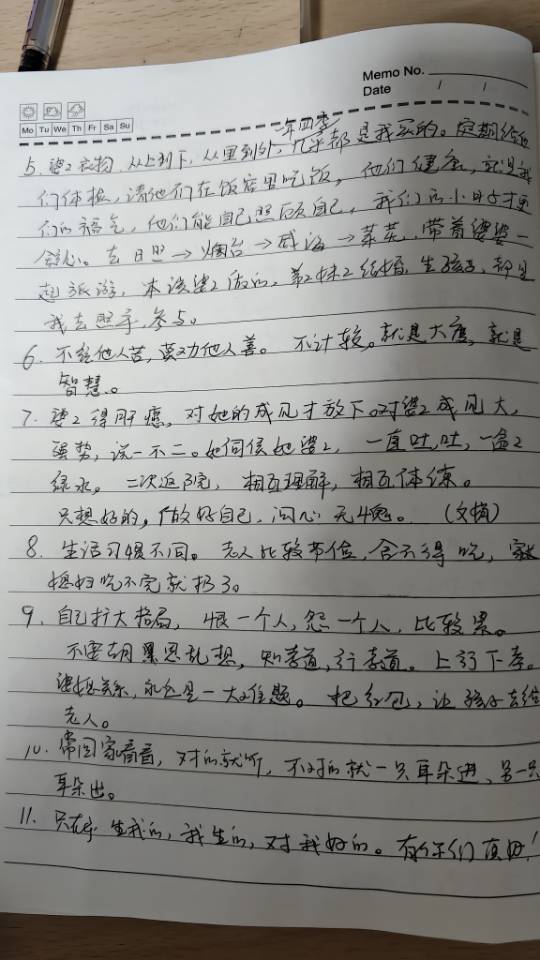 Memo No.
Date / /
Mo Tu We Th Fr Sa Su
一年四季
5. 婆婆衣物,从上到下,从里到外,几乎都是我买的。定期给他
们体检,请他们在饭店里吃饭,他们健康,就是我
们的福气,他们能自己照顾自己,我们的小日子才更
舒心。去日照→烟台→威海→莱芜,带着婆婆一
起旅游,本该婆婆做的,弟弟妹妹结婚,生孩子,都是
我去照手,参与。
6. 不给他人苦,莫劝他人善。不计较。就是大度,就是
智慧。
7. 婆婆得肝癌,对她的成见才放下。对婆婆成见大,
强势,说一不二。如何侯她婆婆,一直吐,吐,一盆盆
绿水。二次返院,相互理解,相互体谅。
只想好的,做好自己,问心无愧。(文摘)
8. 生活习惯不同。老人比较节俭,舍不得吃,
媳妇吃不完就扔了。
9. 自己扩大格局,恨一个人,怨一个人,比较累。
不要胡思乱想,知孝道,行孝道。上行下孝。
婆媳关系,永远是一大难题。把红包,让孩子去给
老人。
10. 常回家看看,对的就听,不对的就一只耳朵进、另一只
耳朵出。
11. 只在乎生我的,我生的,对我好的。有你们真好!